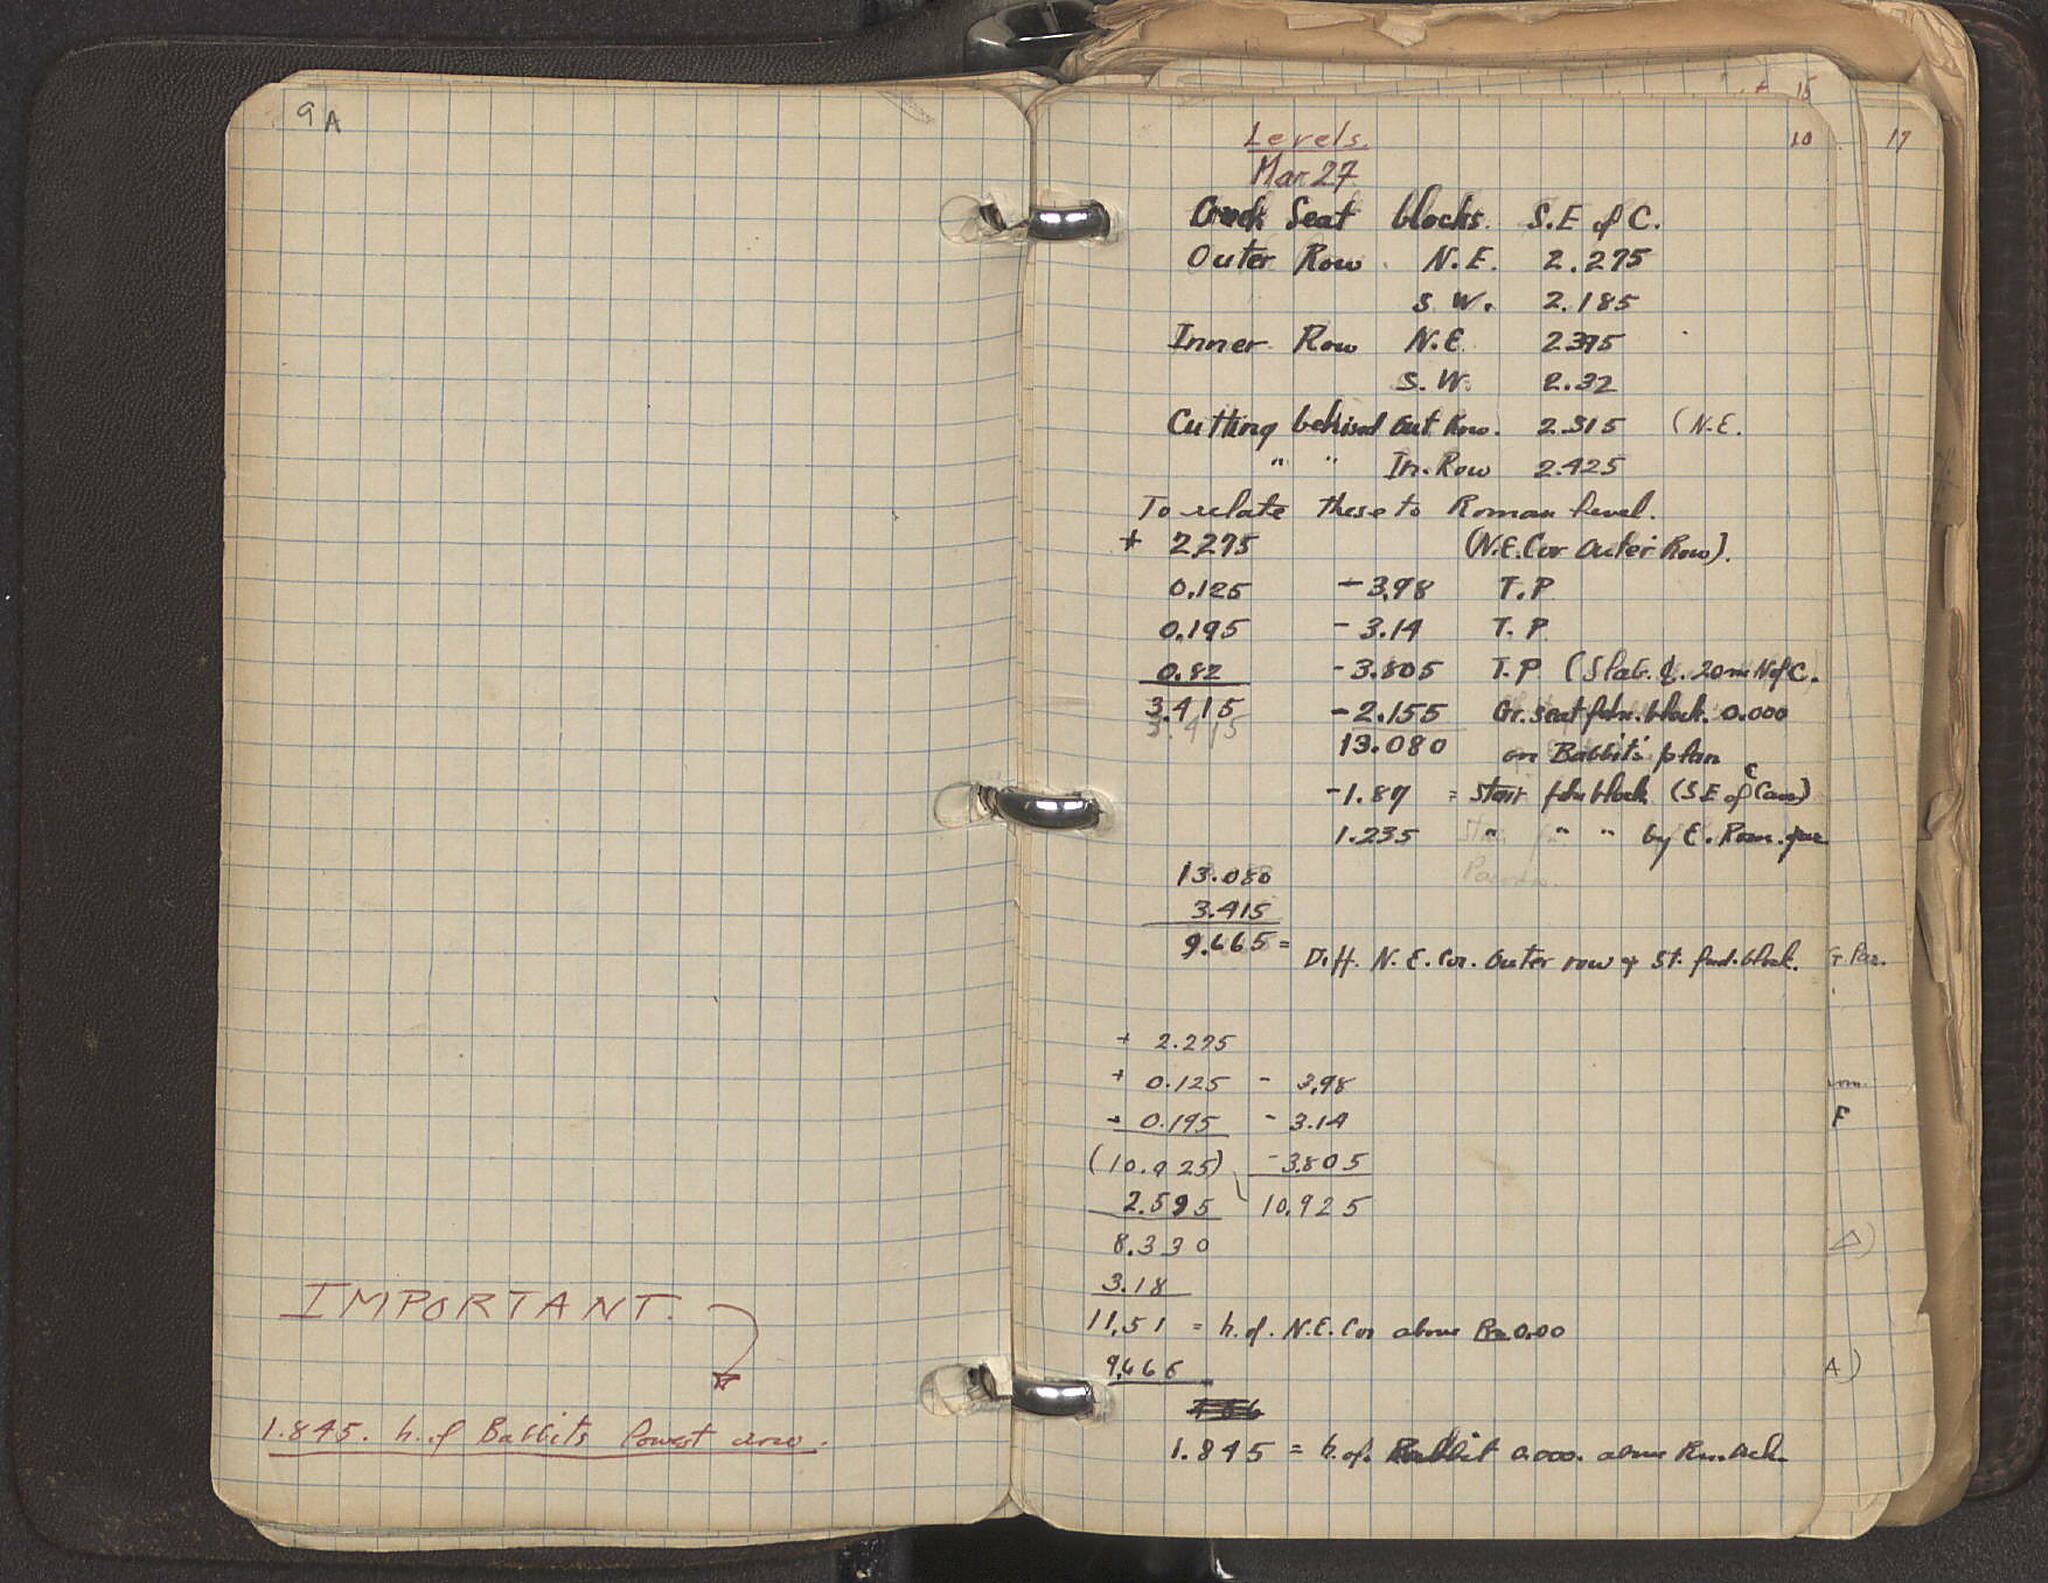 9A
IMPORTANT.
1.845. h. of Babbits lowest drw.
15
10
17
Levels.
Mar 27
Seat blocks. S.E of C.
Outer Row. N.E. 2.275
S.W. 2.185
Inner Row N.E. 2395
S.W. 2.32
Cutting behind Out Row. 2.315 (N.E.
" " In. Row 2.425
To relate these to Roman level.
+ 2275 (N.E. Cor Outer Row).
0.125 - 3.98 T.P
0.195 - 3.14 T.P.
0.82 - 3.805 T.P (Slab. 20m N of C.
3.415 - 2.155 Gr. seat fdn. block. 0.000
3.415
13.080 on Babbit's plan
-1.87 = Stair fdn block (S.E of Cav)
1.235 " " " by E. Rom. par
13.080
3.415
9.665 = Diff. N.E. Cor. Outer row & St. fnd. block. G. Par.
+ 2.275
+ 0.125 - 3.98
+ 0.195 - 3.14 F
(10.925) - 3.805
2.595 10.925
8.330
3.18
11.51 = h. of. N.E. Cor above Rm 0.00
9.665 A)
1.845 = h. of. Babbit 0.000. above Rm. Orch.